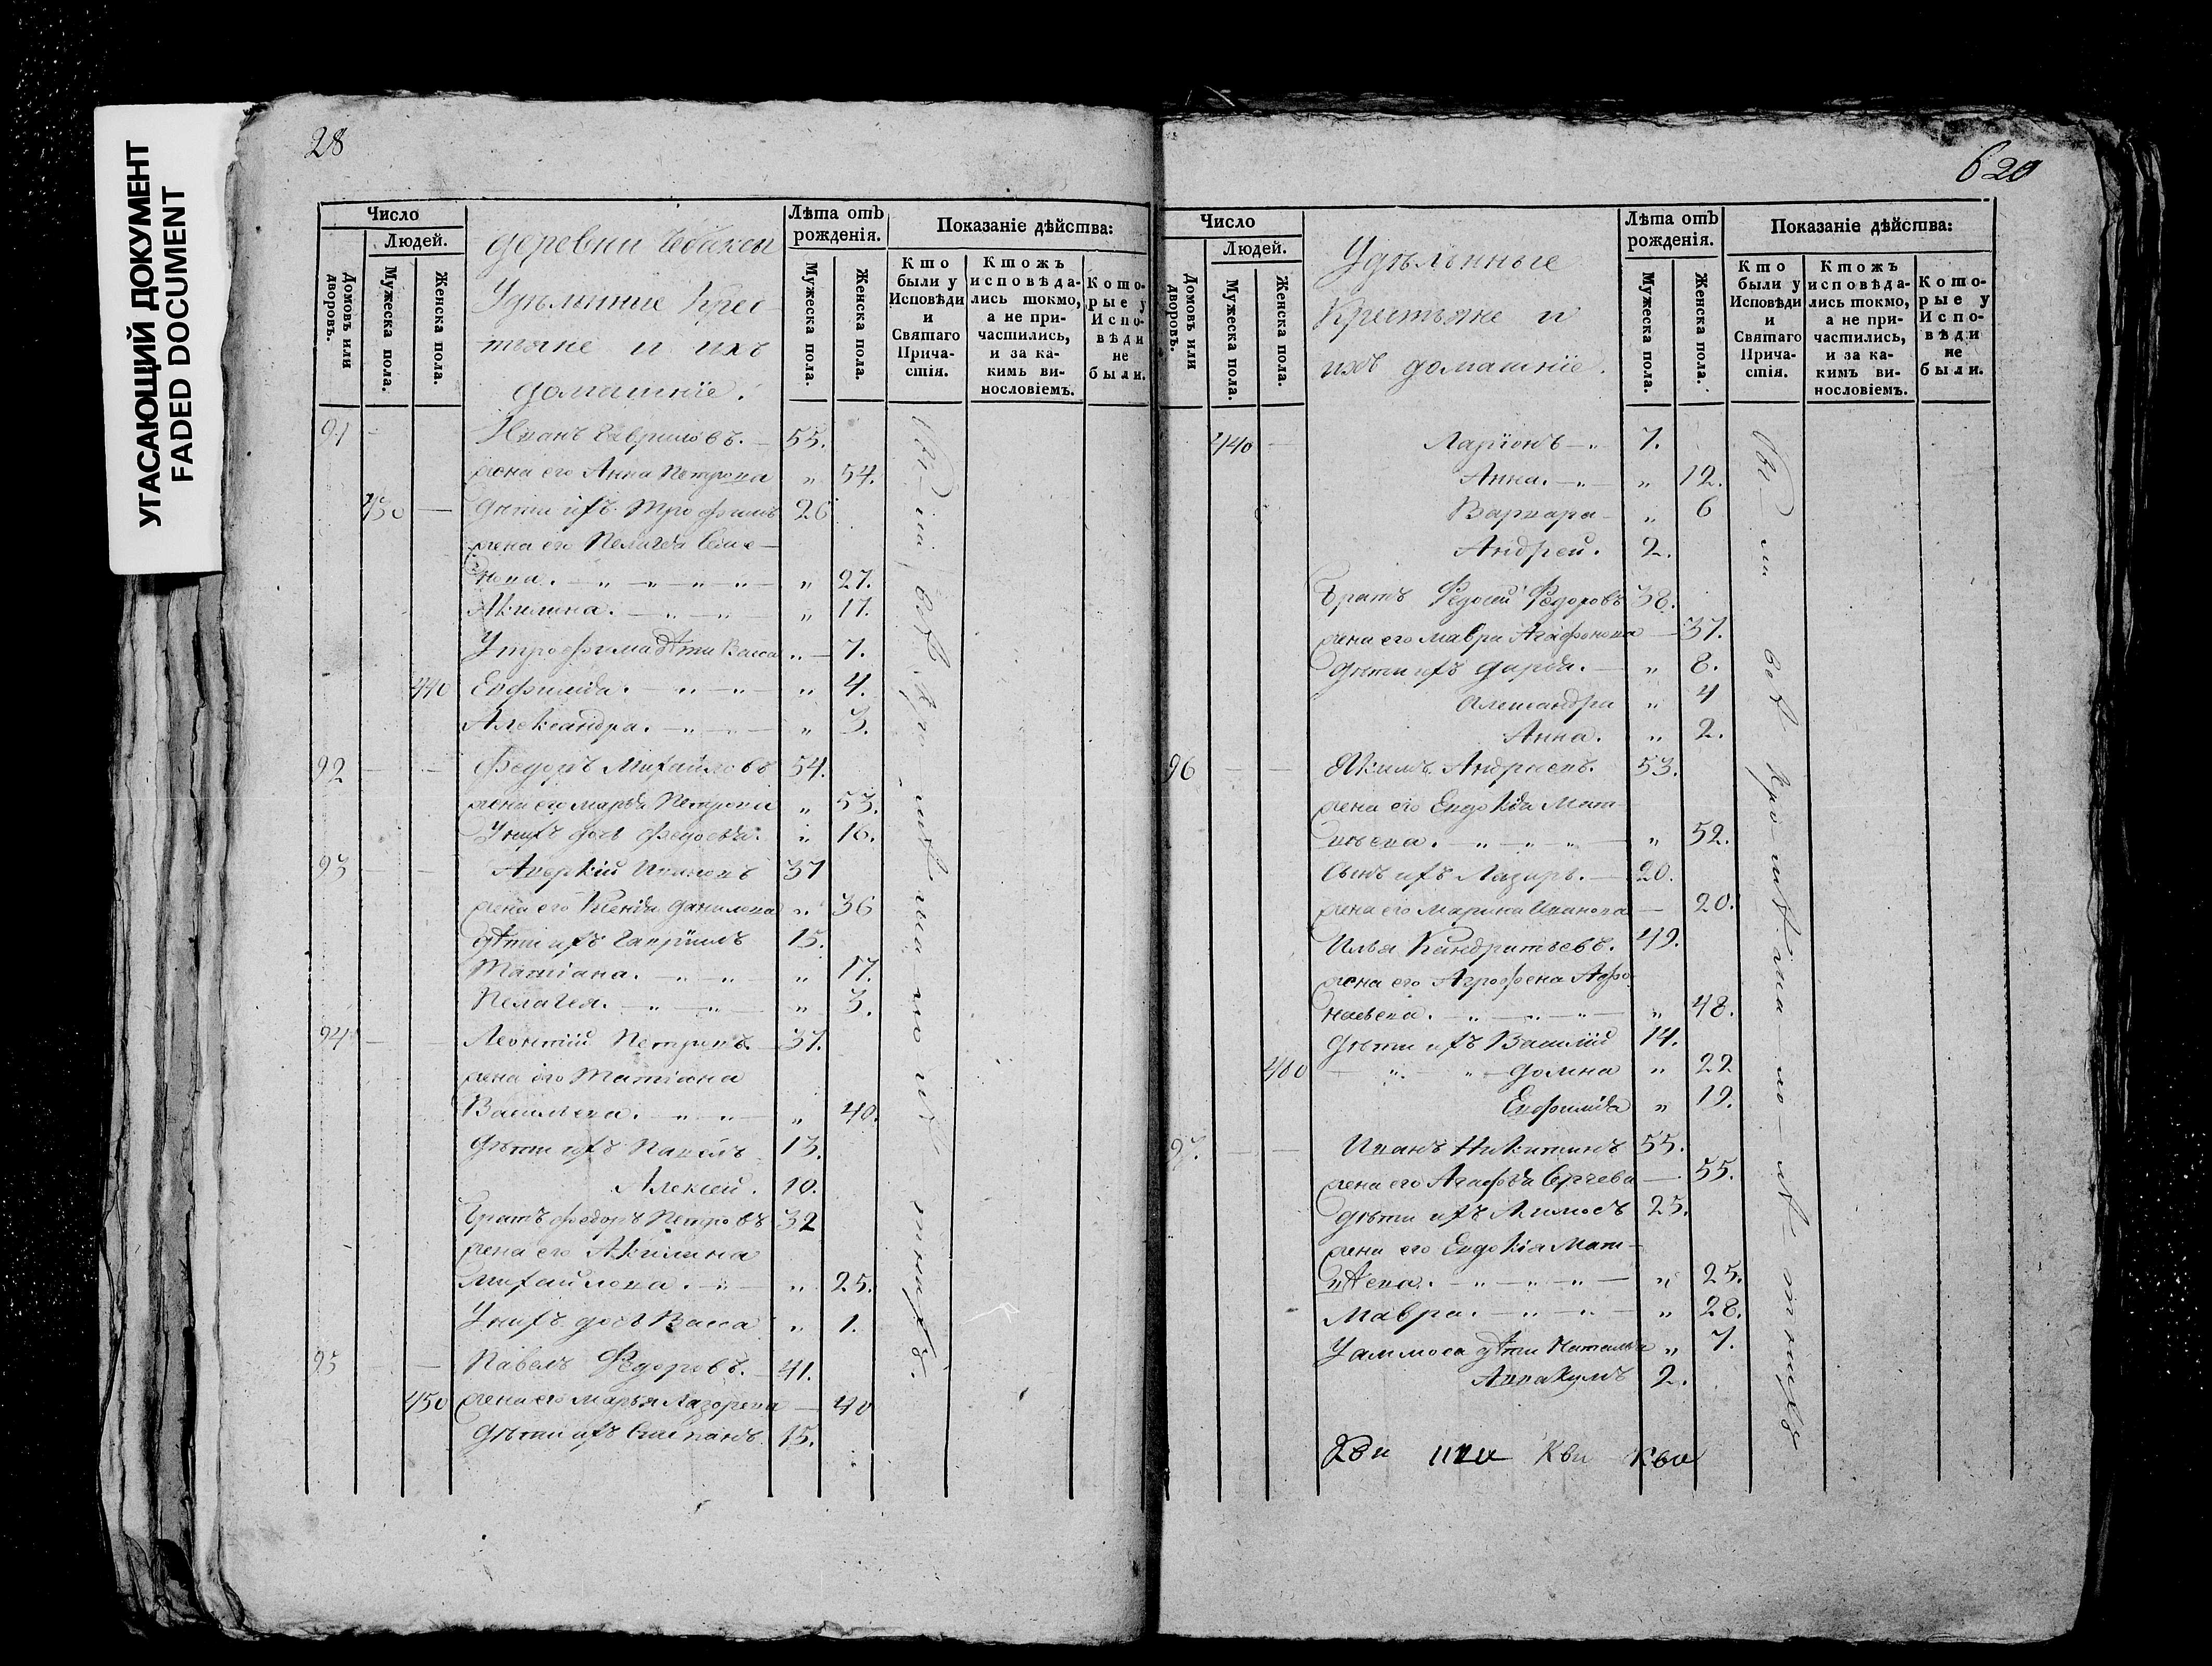 УГАСАЮЩИЙ ДОКУМЕНТ
FADED DOCUMENT
28
Число
Людей.
Домовъ или дворовъ.
Мужеска пола.
Женска пола.
деревни
Удѣльные Крес-
тьяне и ихъ
домашніе.
Лѣта отъ рожденія.
Мужеска пола.
Женска пола.
Показаніе дѣйства:
Кто были у Исповѣди и Святаго Прича-стія.
Ктожъ исповѣда-лись токмо, а не при-частились, и за ка-кимъ ви-нословіемъ.
Кото-рые у Испо-вѣди не были.
91 Иванъ Гавриловъ. 55.
жена его Анна Петрова „ 54.
430 дѣти ихъ Трофимъ 26
жена его Пелагѣя Семе-
нова. „ 27.
Акилина. „ 17.
У трофима дѣти Васса „ 7.
440 Евфимія. „ 4.
Александра. „ 3.
92 Федоръ Михайловъ 54.
жена его Марья Петрова „ 53.
У нихъ дочь Федосья. „ 16.
93 Аверкій Ивановъ 37
жена его Ксенія Данилова „ 36
дѣти ихъ Гавріилъ 15.
Татіана. „ 17.
Пелагея. „ 3.
94 Леонтій Петровъ. 37.
жена его Татіана
Васильева. „ 40.
дѣти ихъ Павелъ 13.
Алексей. 10.
Братъ Федоръ Петровъ 32
жена его Акилина
Михайлова. „ 25.
У нихъ дочь Васса „ 1.
95 Павелъ Федоровъ. 41.
450 жена его Марья Лазорева — 40
дѣти ихъ Степанъ 15.
620
Число
Людей.
Домовъ или дворовъ.
Мужеска пола.
Женска пола.
Удѣльные
Крестьяне и
ихъ домашніе.
Лѣта отъ рожденія.
Мужеска пола.
Женска пола.
Показаніе дѣйства:
Кто были у Исповѣди и Святаго Прича-стія.
Ктожъ исповѣда-лись токмо, а не при-частились, и за ка-кимъ ви-нословіемъ.
Кото-рые у Испо-вѣди не были.
440 Ларіонъ 7.
Анна. „ 12.
Варвара „ 6
Андрей. 2.
Братъ Федосей Федоровъ 38.
жена его Мавра Агафонова — 37.
дѣти ихъ Дарья. „ 8.
Александра „ 4
Анна. „ 2.
96 Якимъ Андреевъ. 53.
жена его Евдокія Мат-
вѣева. „ 52.
Сынъ ихъ Лазарь. 20.
жена его Марина Иванова — 20.
Илья Кандратьевъ. 49.
жена его Агрофена Афо-
насьева. „ 48.
дѣти ихъ Василій 14.
460 Домна „ 22
Евфимія „ 19.
97. Иванъ Никитинъ 55.
жена его Агафья Сергѣева — 55.
дѣти ихъ 25.
жена его Евдокія Мат-
вѣева. „ 25.
Мавра. „ 28.
дѣти Наталья „ 7.
Аввакумъ 2.